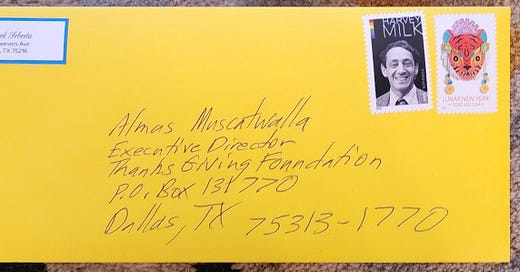 rd Seberta
eevers Ave
, TX 75216
HARVEY
MILK
LUNAR NEW YEAR
FOREVER USA
Almas Muscatwalla
Executive Director
Thanks Giving Foundation
P.O. Box 131770
Dallas, TX 75313-1770